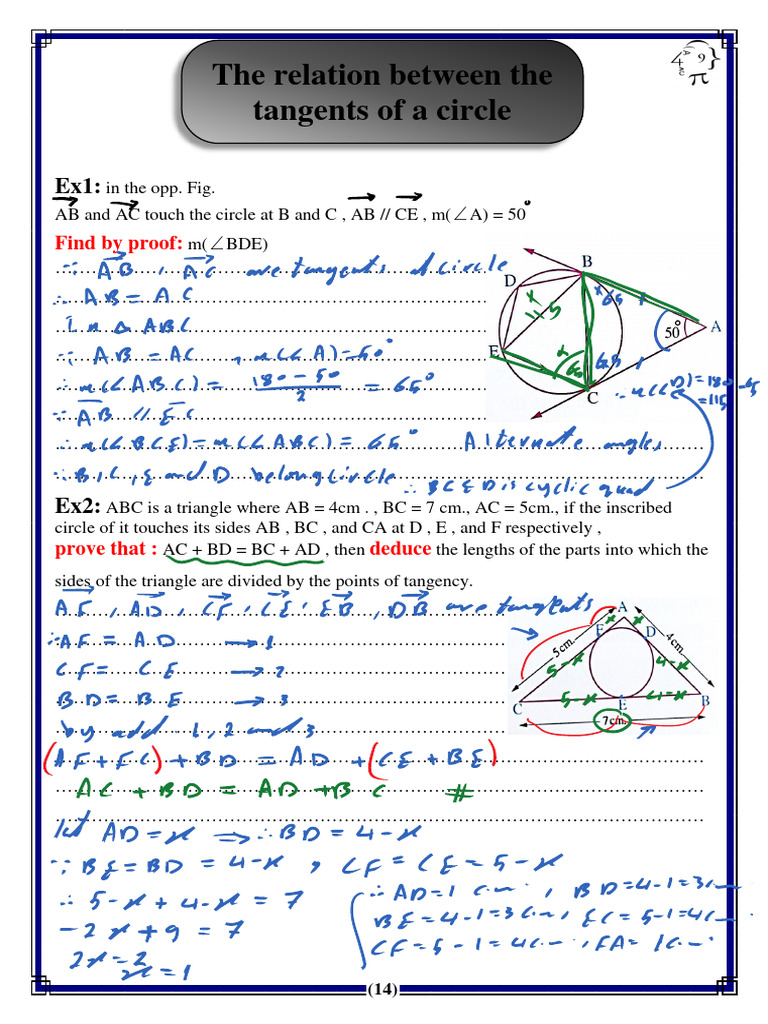 The relation between the
tangents of a circle
Ex1: in the opp. Fig.
AB and AC touch the circle at B and C , AB // CE , m(∠A) = 50°
Find by proof: m(∠BDE)
∵ AB , AC are tangents of circle
∴ AB = AC
In Δ ABC
∵ AB = AC , m(∠A) = 50°
∴ m(∠ABC) = 180 - 50 / 2 = 65°
∵ AB // EC
∴ m(∠BCE) = m(∠ABC) = 65° Alternate angles
∵ B, C, E and D belong circle
∴ BCED is cyclic quad
∴ m(∠D) = 180 - 65
= 115
B
D
A
E
C
50°
65
65
65
115
x
x
Ex2: ABC is a triangle where AB = 4cm . , BC = 7 cm., AC = 5cm., if the inscribed
circle of it touches its sides AB , BC , and CA at D , E , and F respectively ,
prove that : AC + BD = BC + AD , then deduce the lengths of the parts into which the
sides of the triangle are divided by the points of tangency.
AF , AD , CF , CE , EB , DB are tangents
∴ AF = AD → 1
CF = CE → 2
BD = BE → 3
by add 1, 2 and 3
(AF + FC) + BD = AD + (CE + BE)
AC + BD = AD + BC #
A
F
D
5cm.
4cm.
x
x
5-x
4-x
5-x
4-x
C
E
B
7cm.
let AD = x ⇒ ∴ BD = 4-x
∵ BE = BD = 4-x , CF = CE = 5-x
∴ 5-x + 4-x = 7
-2x + 9 = 7
2x = 2
x = 1
∴ AD = 1 cm , BD = 4-1 = 3cm
BE = 4-1 = 3cm , EC = 5-1 = 4cm
CF = 5-1 = 4cm , FA = 1cm
(14)